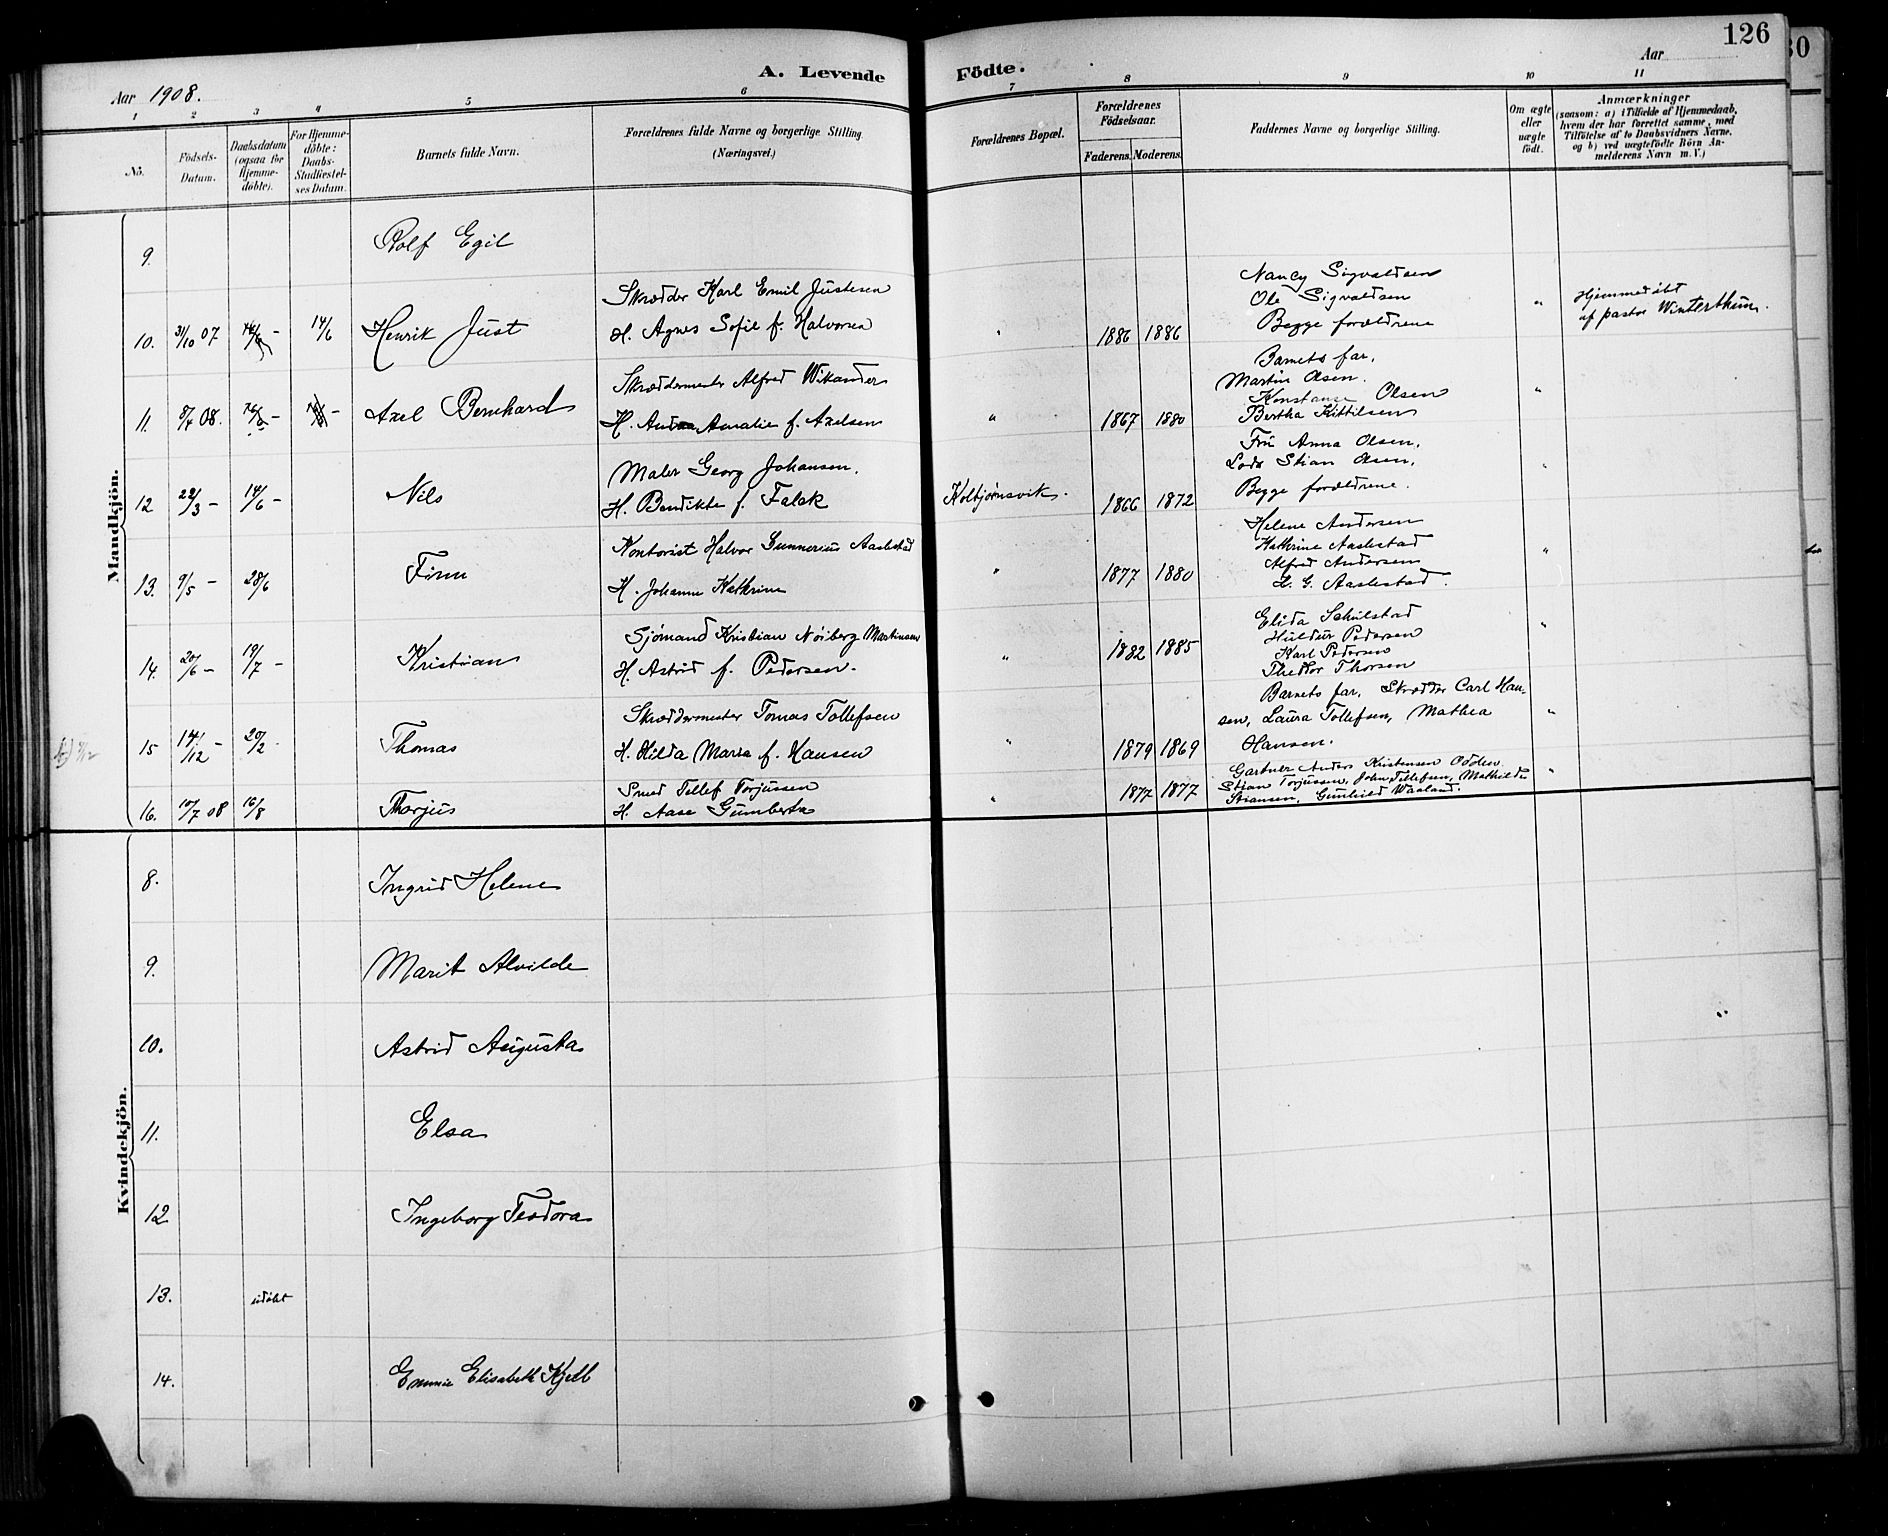 126
Aar 1908.
A. Levende Födte.
Aar
1 2 3 4 5 6 7 8 9 10 11
No.
Födsels-Datum.
Daabsdatum (ogsaa för Hjemme-döbte).
For Hjemme-döbte: Daabs-Stadfæstel-ses Datum.
Barnets fulde Navn.
Forældrenes fulde Navne og borgerlige Stilling (Næringsvei.)
Forældrenes Bopæl.
Forældrenes Födselsaar.
Faderens. Moderens.
Faddernes Navne og borgerlige Stilling.
Om ægte eller uægte födt.
Anmærkninger
(saasom: a) i Tilfælde af Hjemmedaab, hvem der har forrettet samme, med Tilföielse af to Daabsvidners Navne, og b) ved uægtefödte Börn An-melderens Navn m. V.)
Mandkjön.
9. Rolf Egil
10. 31/10 07 14/6 - 14/6 Henrik Just
Skrædder Karl Emil Justesen
H. Agnes Sofie f. Halvorsen
" 1886 1886
Nancy Sigvaldsen
Ole Sigvaldsen
Begge forældrene
"
Hjemmedøbt
af pastor Winterthun.
11. 8/4 08. Axel Bernhard
Skræddermester Alfred Wikander
H. Amalie f. Axelsen
" 1867 1880
Barnets far,
Martin Olsen.
Konstanse Olsen
Bertha Kittilsen
"
12 22/3 - 14/6 - Nils
Maler Georg Johansen.
H. Bendikte f. Falck
Kolbjørnsvik. 1866 1872
Fru Anna Olsen,
Lods Stian Olsen,
Begge forældrene.
"
13. 9/5 - 28/6 Finn
Kontorist Halvor Gunnerius Aaslestad
H. Johanne Kathrine
" 1877 1880
Helene Andersen
Kathrine Aaslestad
Alfred Andersen
H. G. Aaslestad.
"
14. 20/6 - 19/7 - Kristian
Sjømand Kristian Nöiberg Martinsen
H. Astrid f. Pedersen.
" 1882 1885
Elida Schulstad
Huldur Pedersen
Karl Pedersen
Theodor Thorsen
"
15 14/12 - 20/2 - Thomas
Skræddermester Tomas Tollefsen
H. Hilda Marie f. Hansen
" 1879 1869
Barnets far, Skrædder Carl Han-
sen, Laura Tollefsen, Mathea
Hansen.
"
16. 10/7 08 16/8 Thorjus
Smed Tellef Torjussen
H. Aase Gumberta
" 1877 1877
Gartner Anders Kristensen Odden
Stian Torjussen, John Tellefsen, Mathilde
Stiansen, Gunhild Waaland.
"
Kvindekjön.
8. Ingrid Helene
9. Marit Alvilde
10. Astrid Augusta
11. Elsa
12 Ingeborg Teodora
13. udøbt
14. Emmie Elisabeth Kjell